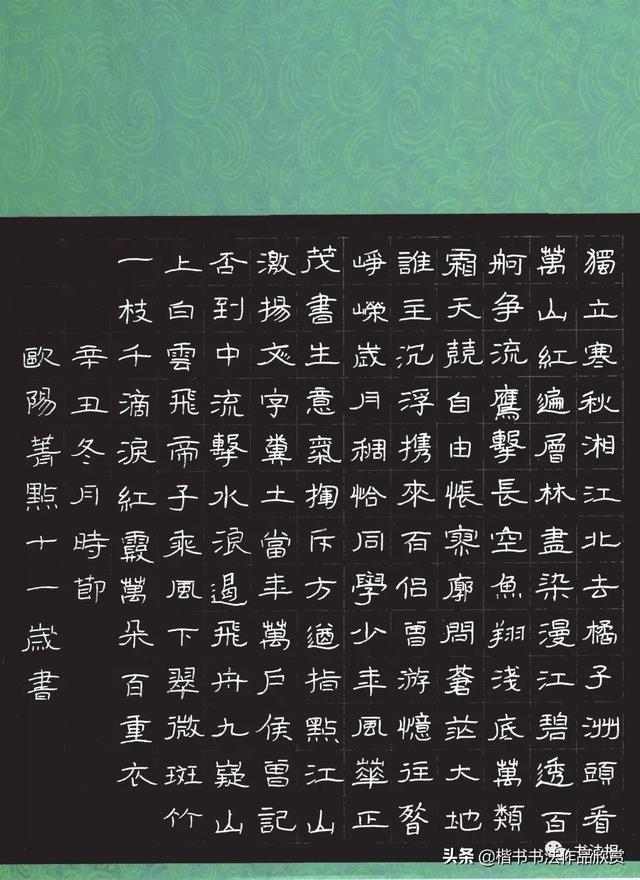 獨立寒秋湘江北去橘子洲頭看
萬山紅遍層林盡染漫江碧透百
舸争流鷹擊長空魚翔淺底萬類
霜天競自由悵寥廓問蒼茫大地
誰主沉浮携來百侶曾游憶往昔
崢嶸歲月稠恰同學少年風華正
茂書生意氣揮斥方遒指點江山
激揚文字糞土當年萬戶侯曾記
否到中流擊水浪遏飛舟九嶷山
上白雲飛帝子乘風下翠微斑竹
一枝千滴淚紅霞萬朵百重衣
辛丑冬月時節
歐陽菁點十一歲書
书法报
头条 @楷书书法作品欣赏